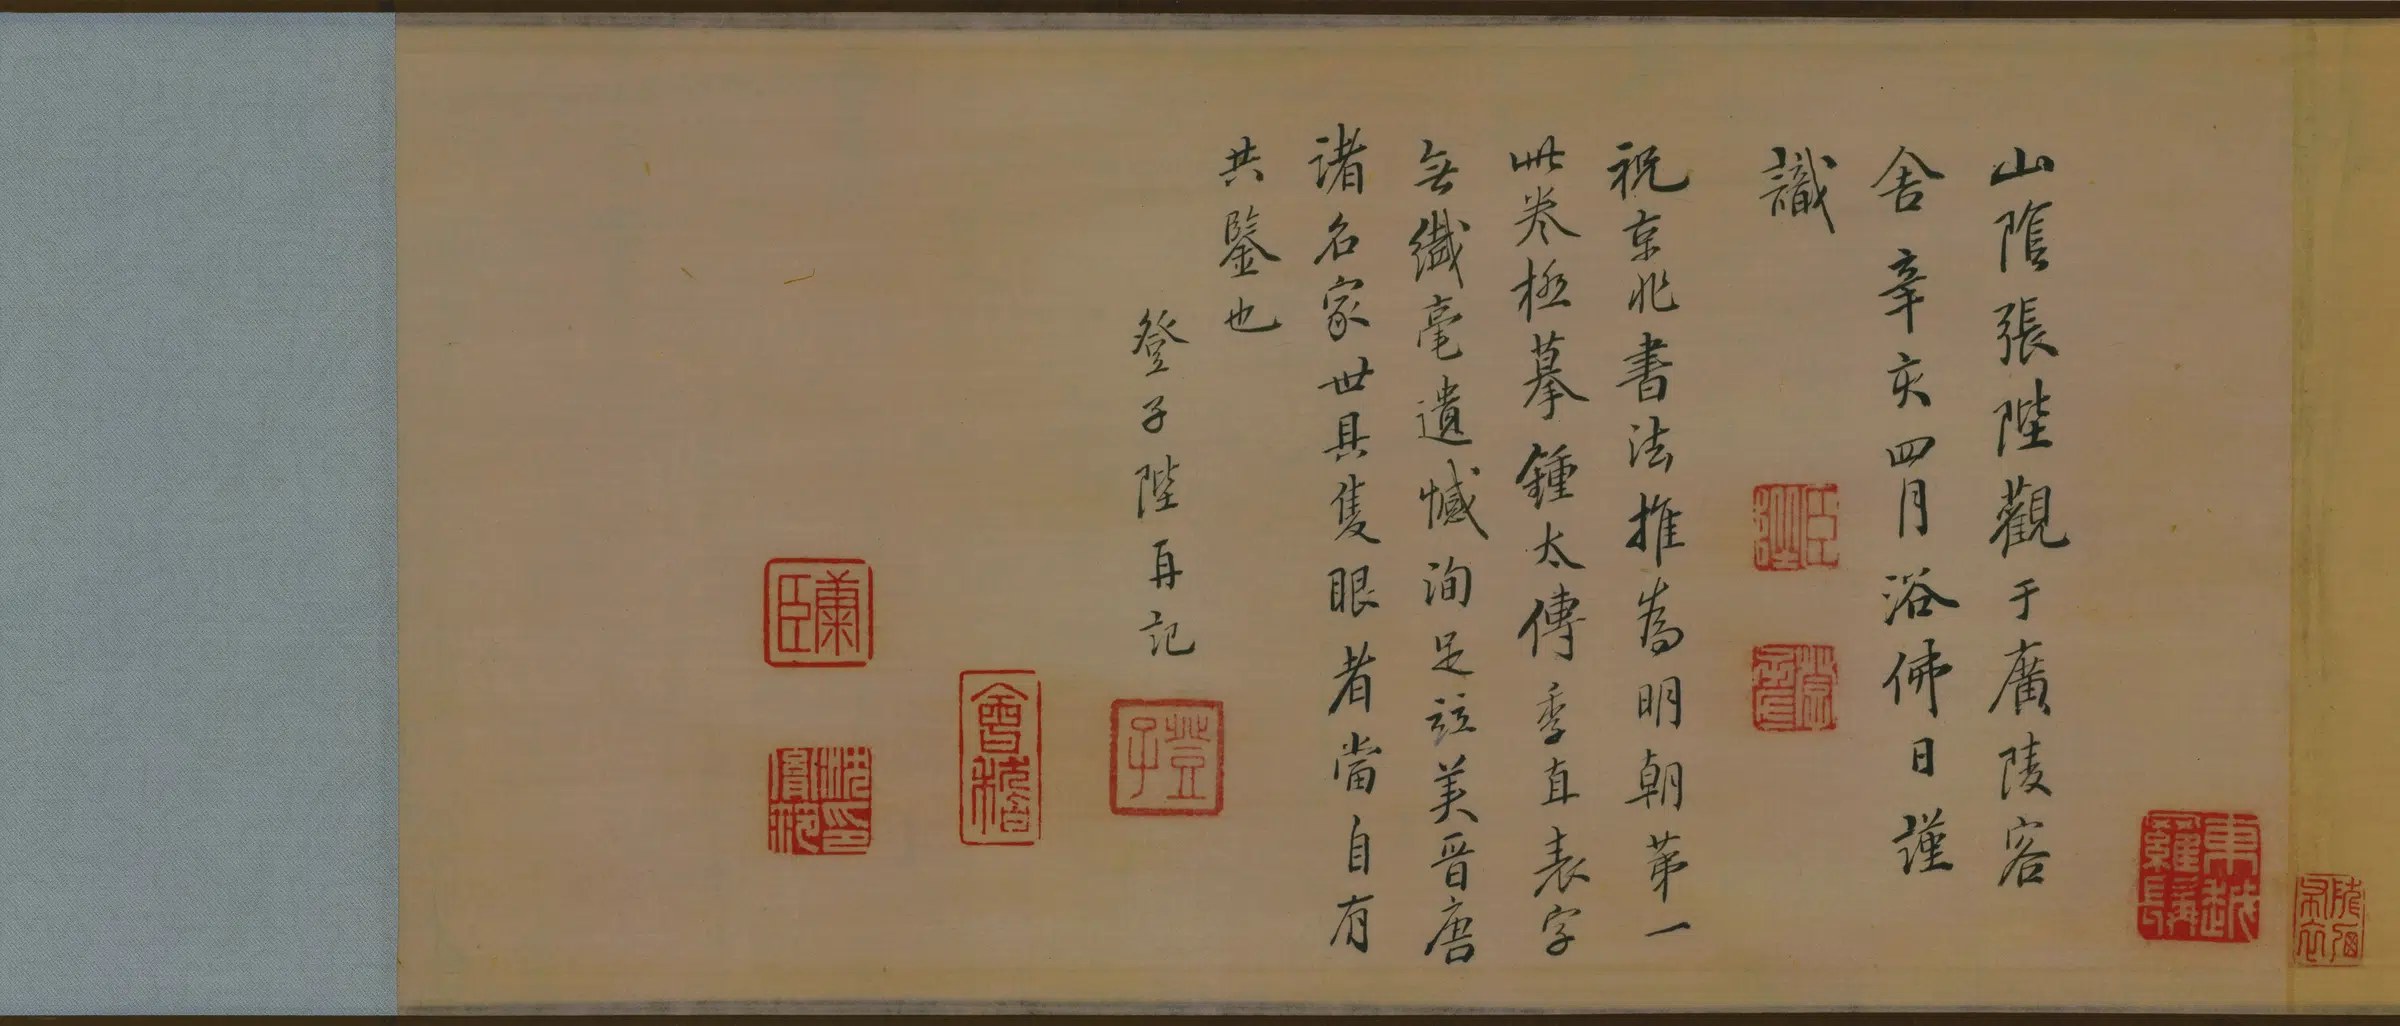 山陰張陛觀于廣陵客
舍辛亥四月浴佛日謹
識
祝京兆書法推為明朝第一
此卷極摹鍾太傅季直表字
無纖毫遺憾洵足竝美晉唐
諸名家世具隻眼者當自有
共鑒也
登子陛再記
臣陛
登子
會稽